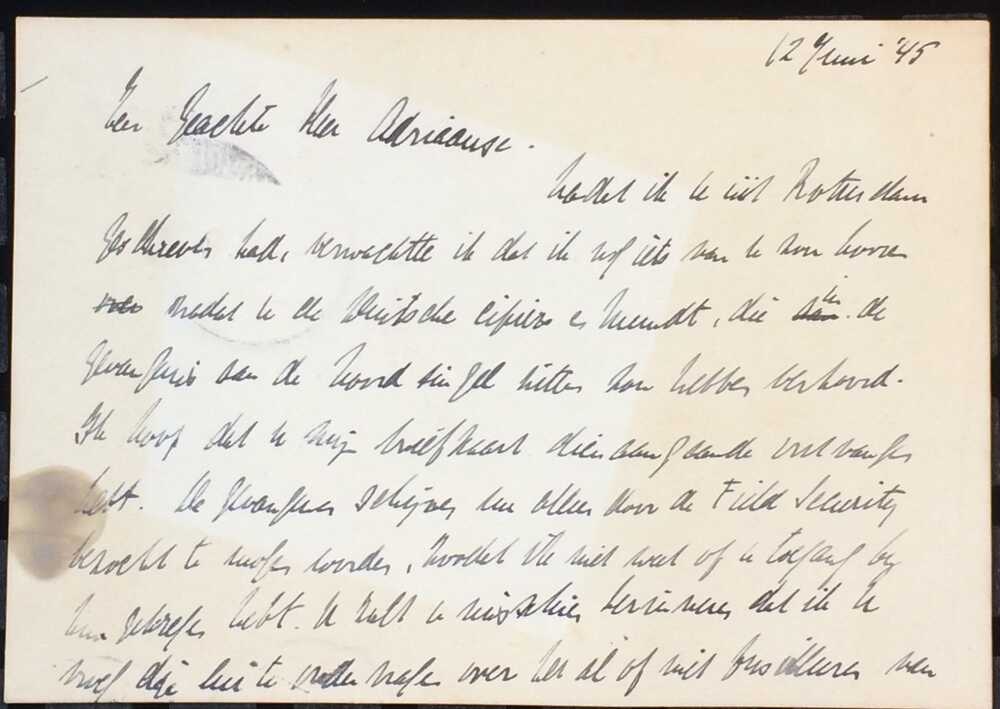 12 Juni '45
Zeer Geachte Heer Adriaanse.
Nadat ik U uit Rotterdam
geschreven had, verwachtte ik dat ik nog iets van U zou hooren
nadat U de Duitsche cipiers, die in de
gevangenis aan de Noordsingel zitten zou hebben verhoord.
Ik hoop dat U mijn briefkaart dienaangaande ontvangen
hebt. De gevangenen schijnen nu alleen door de Field Security
bezocht te mogen worden, zoodat ik niet weet of U toegang bij
hen gekregen hebt. U zult U misschien herinneren dat ik U
vroeg die lui te ondervragen over het al of niet fusilleeren van